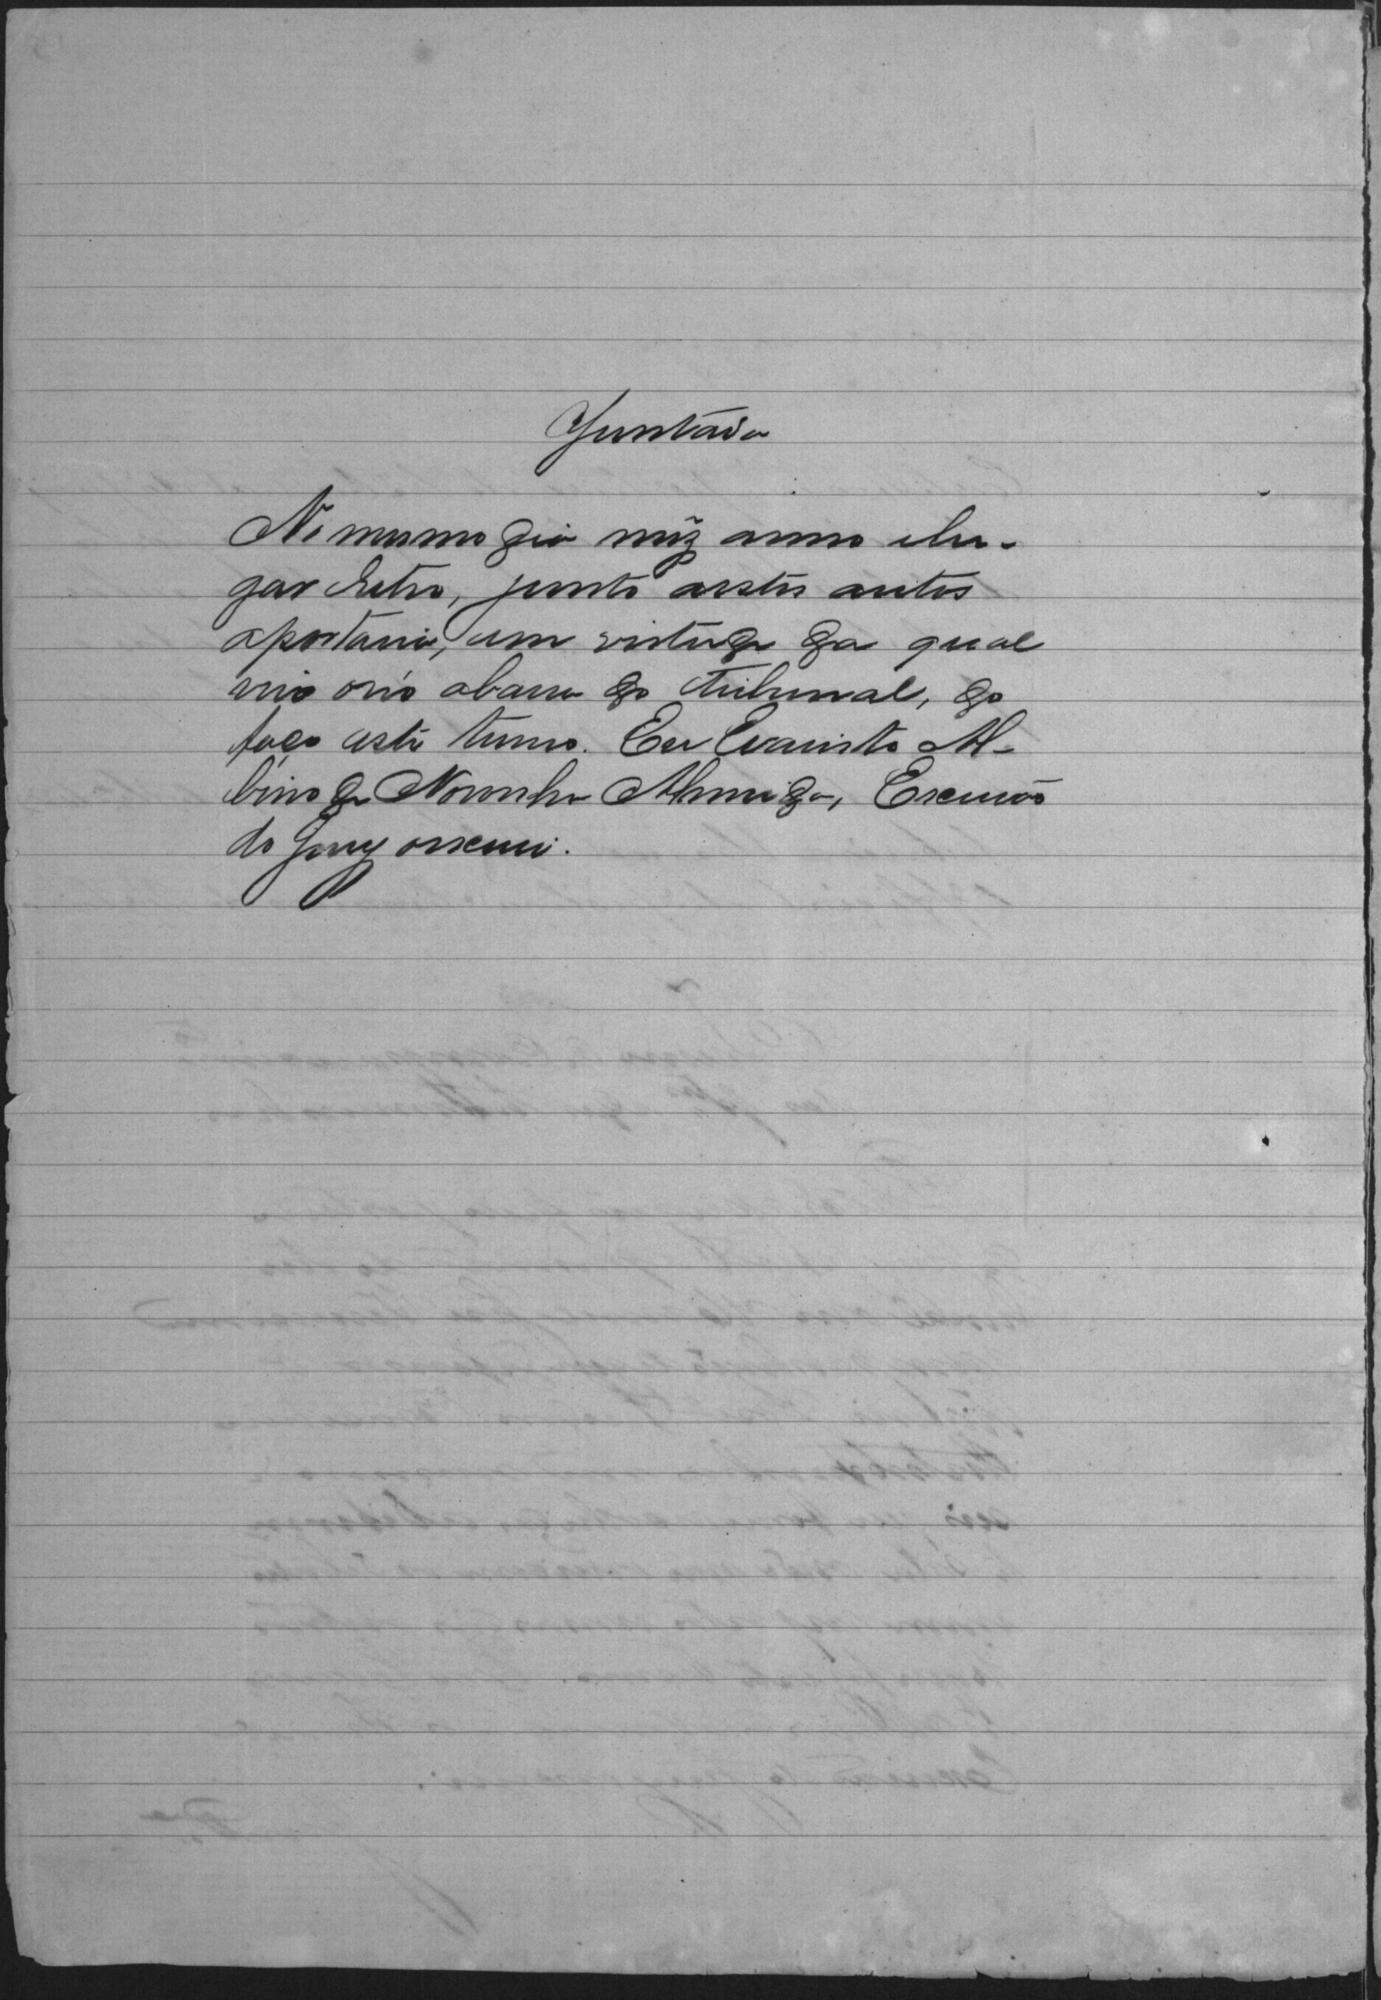 Juntada
No mesmo dia mez anno e lu-
gar retro, junto a estes autos
a portaria, em virtude da qual
veio o réo a barra do tribunal, do
faço este termo. Eu Evaristo Al-
bino de Noronha Almeida, Escrivão
do Jury o escrevi.